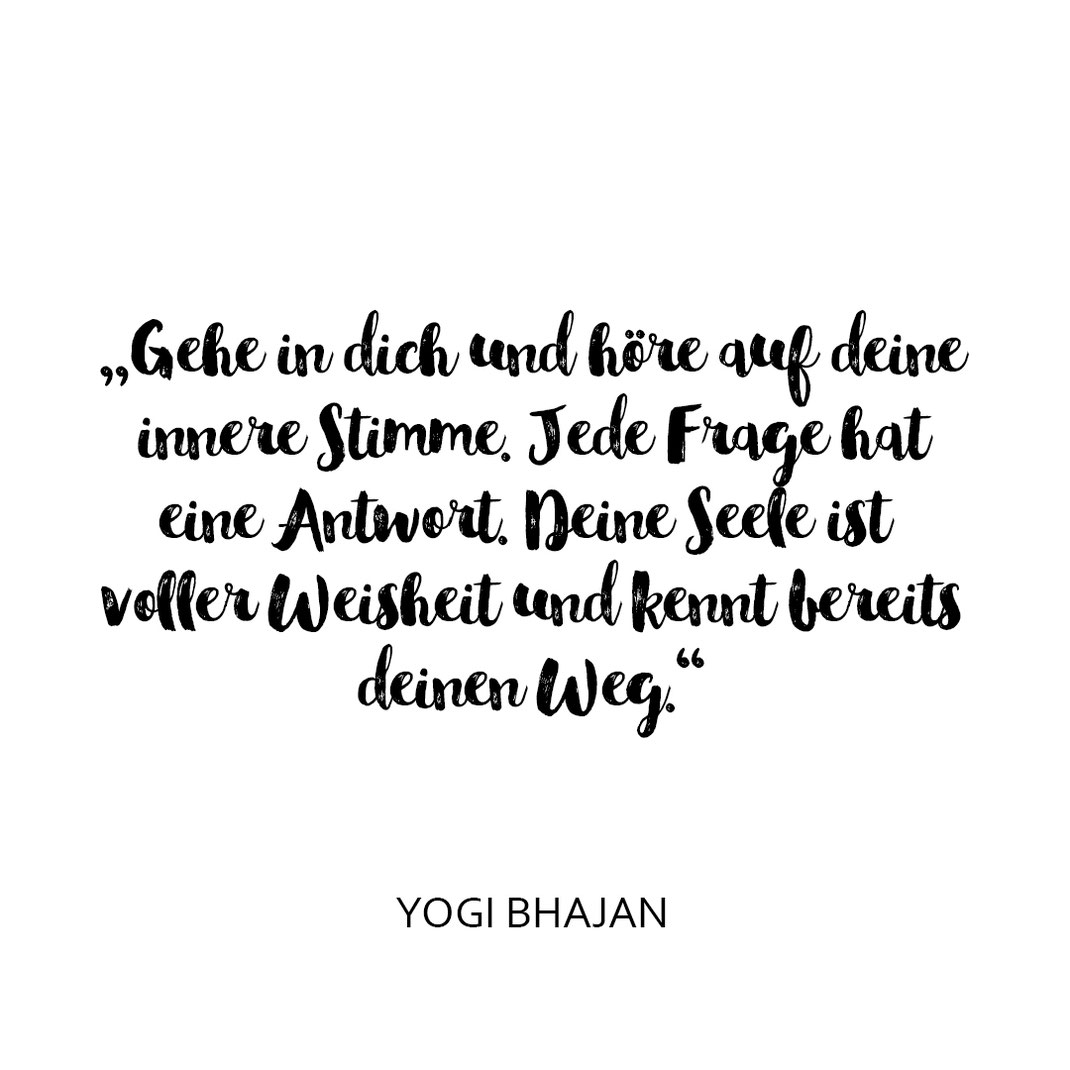 „Gehe in dich und höre auf deine
innere Stimme. Jede Frage hat
eine Antwort. Deine Seele ist
voller Weisheit und kennt bereits
deinen Weg.“
YOGI BHAJAN